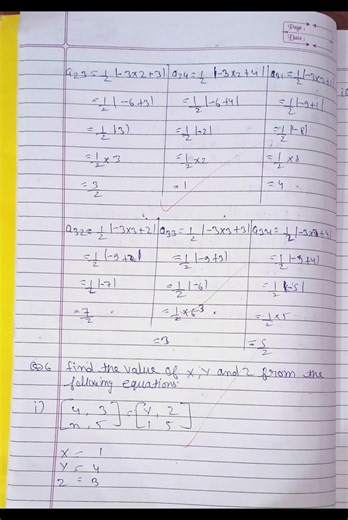 Page :
Date :
a23 = 1/2 |-3x2+3|
= 1/2 |-6+3|
= 1/2 |3|
= 1/2 x 3
= 3/2
a24 = 1/2 |-3x2+4|
= 1/2 |-6+4|
= 1/2 |-2|
= 1/2 x 2
= 1
a31 = 1/2 |-3x3+1|
= 1/2 |-9+1|
= 1/2 |-8|
= 1/2 x 8
= 4
a32 = 1/2 |-3x3+2|
= 1/2 |-9+2|
= 1/2 |-7|
= 7/2
a33 = 1/2 |-3x3+3|
= 1/2 |-9+3|
= 1/2 |-6|
= 3
a34 = 1/2 |-3x3+4|
= 1/2 |-9+4|
= 1/2 |-5|
= 1/2 x 5
= 5/2
Q6 find the value of x, y and z from the
following equations:
i) [4, 3] = [y, z]
[x, 5] [1 5]
x = 1
y = 4
z = 3